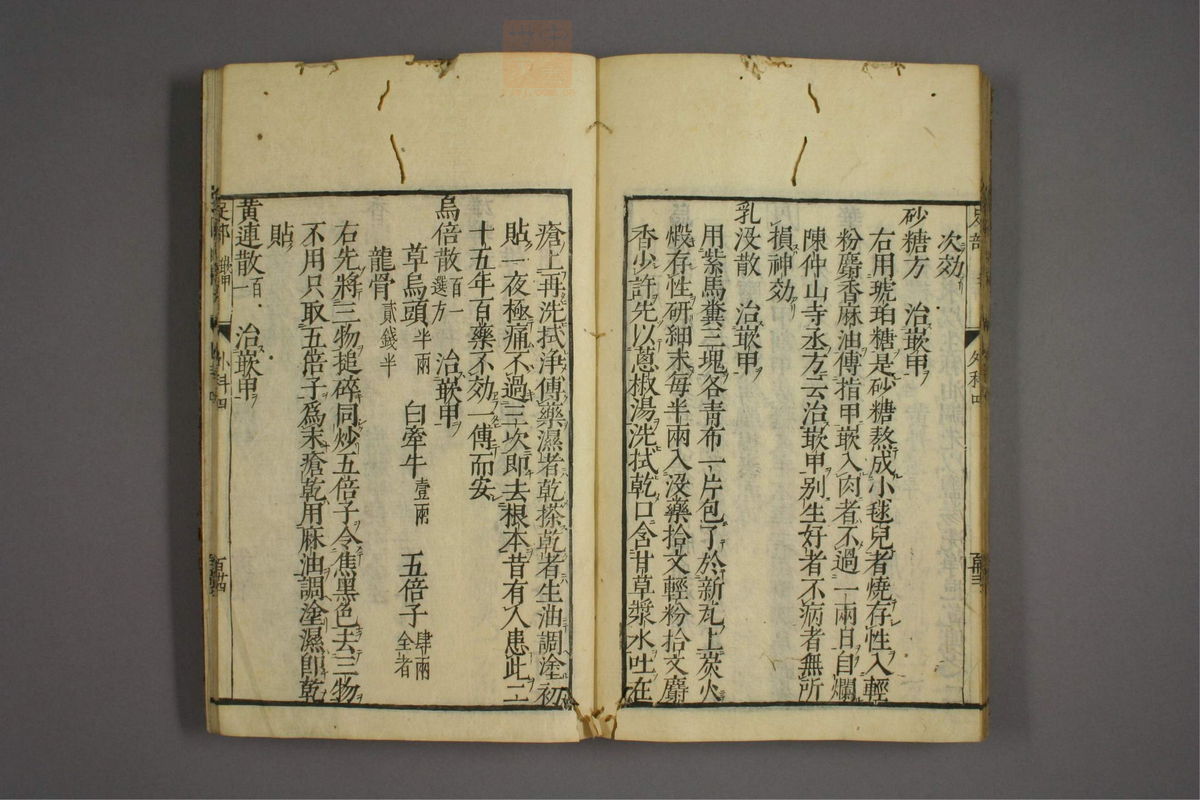 次効
砂糖方　治嵌甲
右用琥珀糖是砂糖熬成小毬兒者燒存性入輕
粉麝香麻油傅指甲嵌入肉者不過一兩日自爛
陳仲山寺丞方云治嵌甲别生好者不病者無所
損神効
乳没散　治嵌甲
用紫馬糞三塊各青布一片包了於新瓦上炭火
煅存性研細末每半兩入没藥拾文輕粉拾文麝
香少許先以蔥椒湯洗拭乾口含甘草漿水吐在
瘡上再洗拭浄傅藥濕者乾搽乾者生油調塗初
貼一夜極痛不過三次即去根本昔有人患此二
十五年百藥不効一傅而安
烏倍散百一選方　治嵌甲
草烏頭半兩　白牽牛壹兩　五倍子肆兩全者
龍骨貳錢半
右先將三物搥碎同炒五倍子令焦黑色去三物
不用只取五倍子爲末瘡乾用麻油調塗濕即乾
貼
黄連散百一　治嵌甲